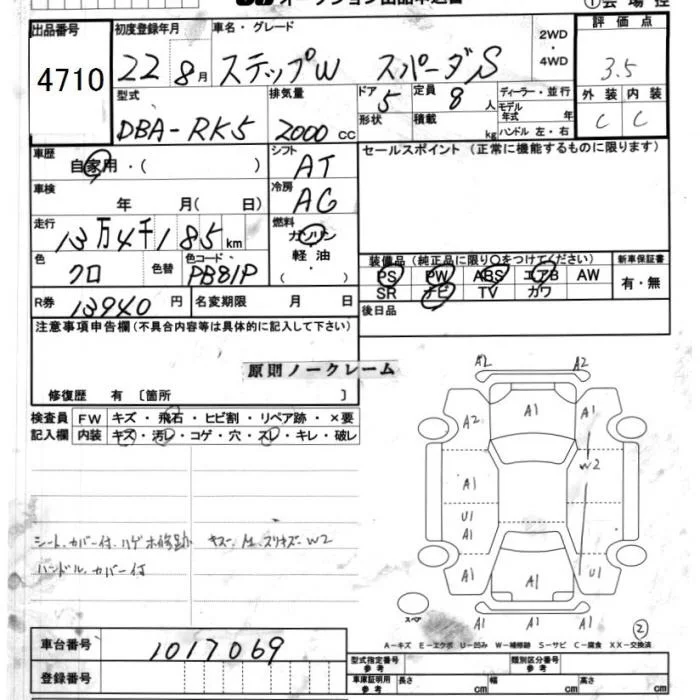 オークション出品申込書
①会場控
出品番号 4710
初度登録年月 22 8月
車名・グレード ステップW スパーダS
2WD・4WD
評価点 3.5
外装 C 内装 C
型式 DBA-RK5
排気量 2000 cc
ドア 5
形状
定員 8 人
積載 kg
ディーラー・並行
モデル年式 年
ハンドル 左・右
車歴 自家用・( )
シフト AT
セールスポイント (正常に機能するものに限ります)
車検 年 月( 日)
冷房 AC
走行 13万4千185km
燃料 ガソリン 軽油 ( ・ )
色 クロ
色替
色コード PB81P
装備品 (純正品に限り○をつけてください)
新車保証書
PS PW ABS エアB AW
SR ナビ TV カワ
有・無
R券 13940 円
名変期限 月 日
後日品
注意事項申告欄(不具合内容等は具体的に記入して下さい)
原則ノークレーム
修復歴 有 〔箇所 〕
検査員 FW キズ・飛石・ヒビ割・リペア跡・×要
記入欄 内装 キズ・汚レ・コゲ・穴・スレ・キレ・破レ
A2 A2
A2 A1 A1
W2
A1
U1
A1 A1 U1
A1 A1
スペア
②
シート、カバー付、ハゲ ホ修跡 キズ、A1、スリキズ、W2
ハンドル、カバー付
車台番号 1017069
登録番号
A-キズ E-エクボ U-凹み W-補修跡 S-サビ C-腐食 XX-交換済
型式指定番号 参考
類別区分番号 参考
車庫証明用 参考 長さ cm 幅 cm 高さ cm